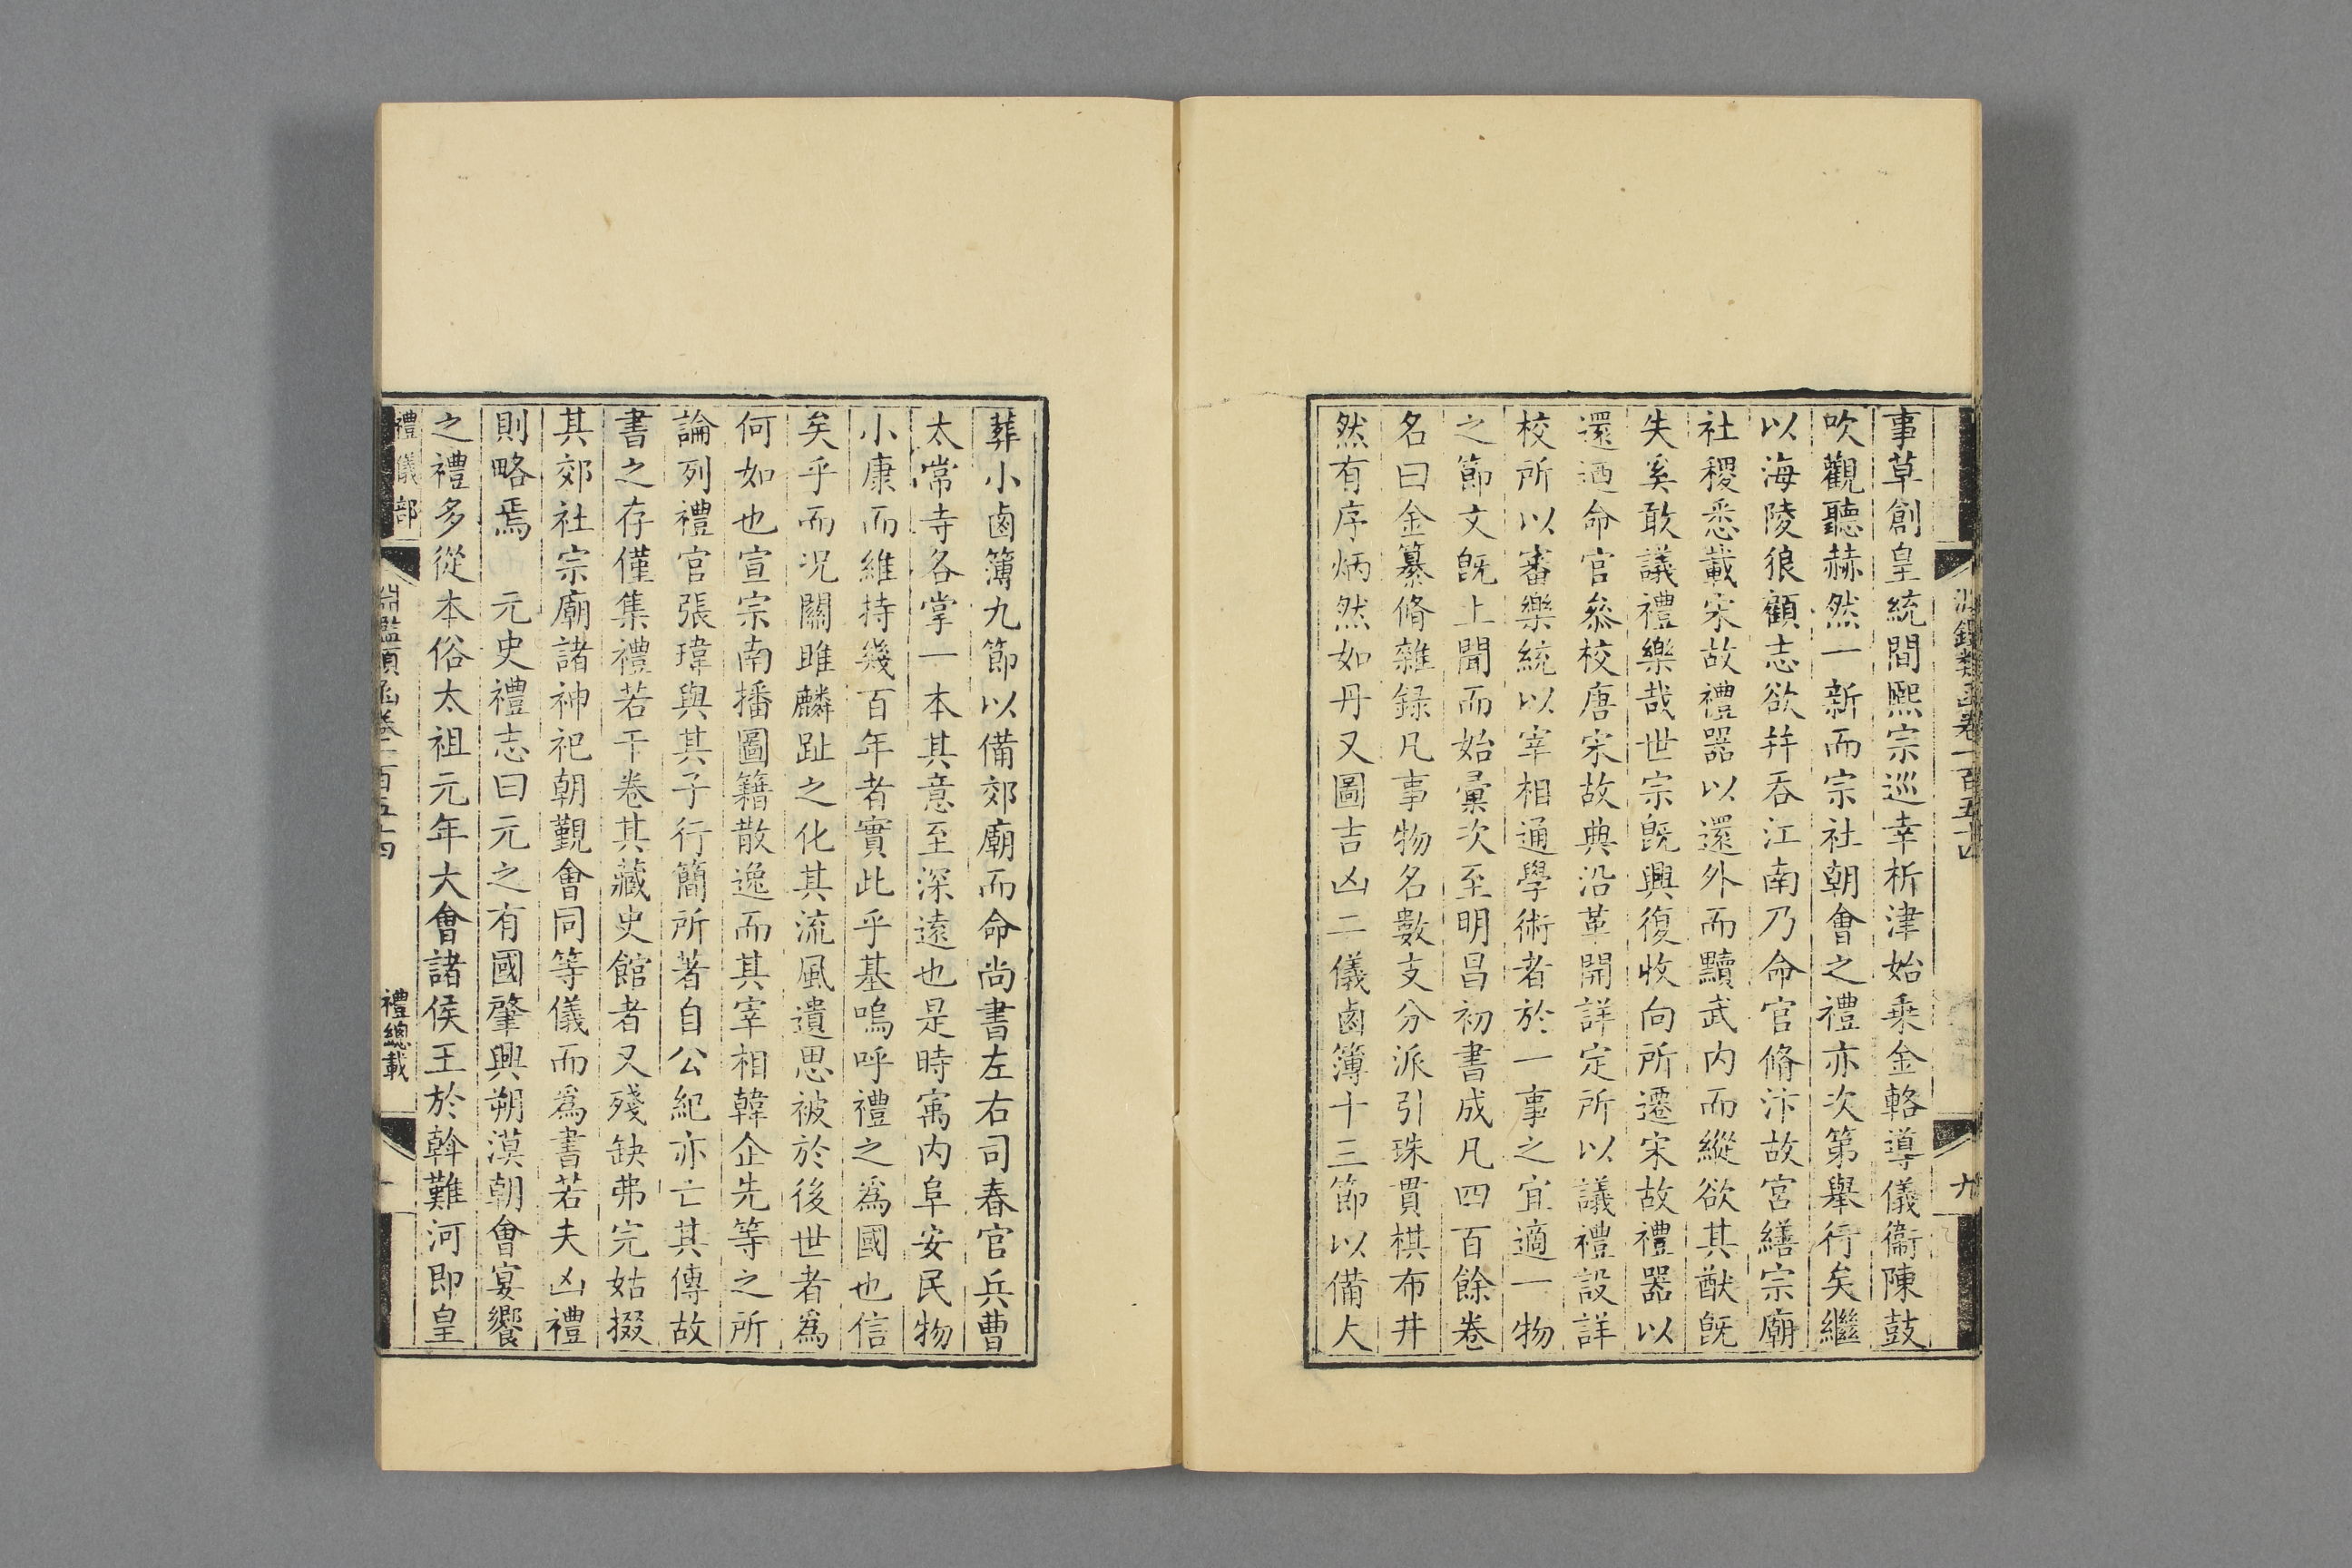 淵鑑類函卷一百五十四
九
事草創皇統間熙宗巡幸析津始乗金輅導儀衞陳鼓
吹觀聽赫然一新而宗社朝會之禮亦次第舉行矣繼
以海陵狼顧志欲幷吞江南乃命官脩汴故宮繕宗廟
社稷悉載宋故禮器以還外而黷武内而縱欲其猷旣
失奚敢議禮樂哉世宗旣興復收向所遷宋故禮器以
還迺命官叅校唐宋故典沿革開詳定所以議禮設詳
校所以審樂統以宰相通學術者於一事之宜適一物
之節文旣上聞而始彚次至明昌初書成凡四百餘卷
名曰金纂脩雜録凡事物名數支分派引珠貫棋布井
然有序炳然如丹又圖吉凶二儀鹵簿十三節以備大
葬小鹵簿九節以備郊廟而命尚書左右司春官兵曹
太常寺各掌一本其意至深遠也是時寓内阜安民物
小康而維持幾百年者實此乎基嗚呼禮之爲國也信
矣乎而况關雎麟趾之化其流風遺思被於後世者爲
何如也宣宗南播圖籍散逸而其宰相韓企先等之所
論列禮官張瑋與其子行簡所著自公紀亦亡其傳故
書之存僅集禮若干卷其藏史館者又殘缺弗完姑掇
其郊社宗廟諸神祀朝覲會同等儀而爲書若夫凶禮
則略焉　元史禮志曰元之有國肇興朔漠朝會宴饗
之禮多從本俗太祖元年大會諸侯王於斡難河即皇
禮儀部
淵鑑類函卷一百五十四
禮總載